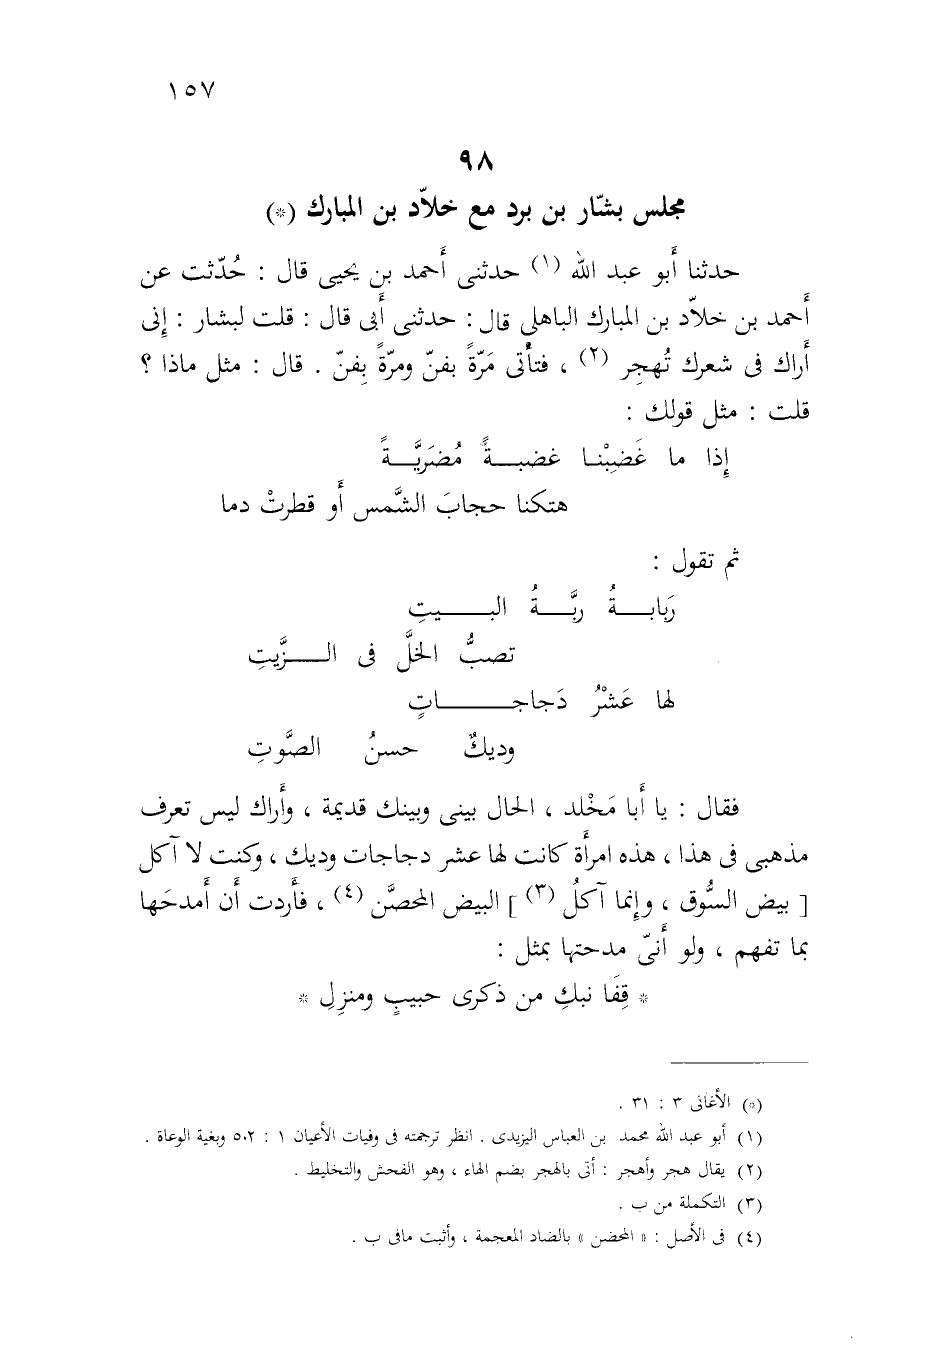 ١٥٧
٩٨
مجلس بشّار بن برد مع خلاّد بن المبارك (*)
حدثنا أَبو عبد الله (١) حدثنى أَحمد بن يحيى قال : حُدّثت عن
أَحمد بن خلاّد بن المبارك الباهلى قال : حدثنى أَبى قال : قلت لبشار : إِنى
أَراك فى شعرك تُهجِر (٢) ، فتأْتى مَرّةً بفنّ ومرّةً بِفنّ . قال : مثل ماذا ؟
قلت : مثل قولك :
إِذا ما غَضِبْنـا غضبـــةً مُضَرِيَّـــةً
هتكنا حجابَ الشَّمس أَو قطرتْ دما
ثم تقول :
رَبابـــةُ رَبَّـــةُ البـــــيتِ
تصبُّ الخلَّ فى الـــزَّيتِ
لها عَشْرُ دَجاجـــــــاتٍ
وديكٌ حسنُ الصَّوتِ
فقال : يا أَبا مَخْلد ، الحال بينى وبينك قديمة ، وأَراك ليس تعرف
مذهبى فى هذا ، هذه امرأَة كانت لها عشر دجاجات وديك ، وكنت لا آكل
[ بيض السُّوق ، وإِنما آكلُ (٣) ] البيض المحصَّن (٤) ، فأَردت أَن أَمدحَها
بما تفهم ، ولو أَنىّ مدحتها بمثل :
* قِفَا نبكِ من ذكرى حبيبٍ ومنزِلِ *
(*) الأغانى ٣ : ٣١ .
(١) أبو عبد الله محمد بن العباس اليزيدى . انظر ترجمته فى وفيات الأعيان ١ : ٥٠٢ وبغية الوعاة .
(٢) يقال هجر وأهجر : أتى بالهجر بضم الهاء ، وهو الفحش والتخليط .
(٣) التكملة من ب .
(٤) فى الأصل : « المحضن » بالضاد المعجمة ، وأثبت مافى ب .